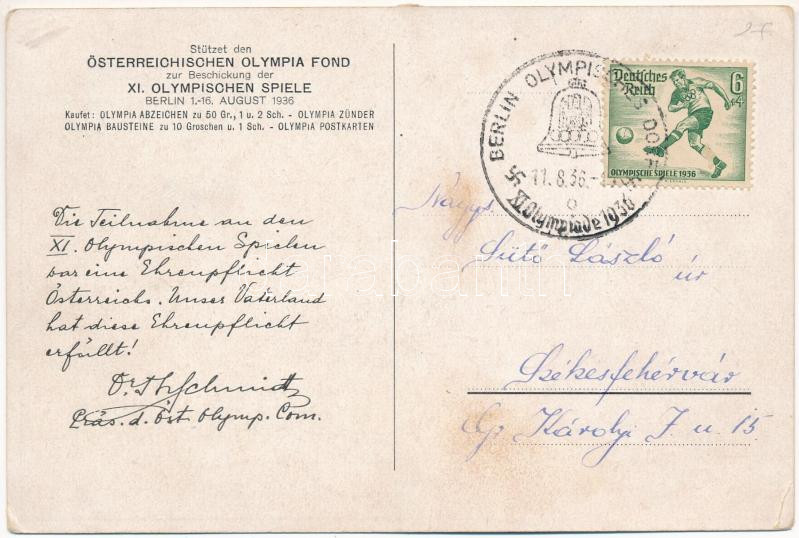 Stützet den
ÖSTERREICHISCHEN OLYMPIA FOND
zur Beschickung der
XI. OLYMPISCHEN SPIELE
BERLIN 1.-16. AUGUST 1936
Kaufet: OLYMPIA ABZEICHEN zu 50 Gr., 1 u. 2 Sch. - OLYMPIA ZÜNDER
OLYMPIA BAUSTEINE zu 10 Groschen u. 1 Sch. - OLYMPIA POSTKARTEN
Die Teilnahme an den
XI. Olympischen Spielen
war eine Ehrenpflicht
Österreichs. Unser Vaterland
hat diese Ehrenpflicht
erfüllt!
Dr. Th Schmidt
Präs. d. Öst. Olymp. Com.
BERLIN OLYMPISCHES DORF
11.8.36.
XI. Olympiade 1936
Deutsches
Reich
6
+4
OLYMPISCHE SPIELE 1936
Nagys.
Sütő László
úr
Székesfehérvár
Gr Károlyi J. u 15